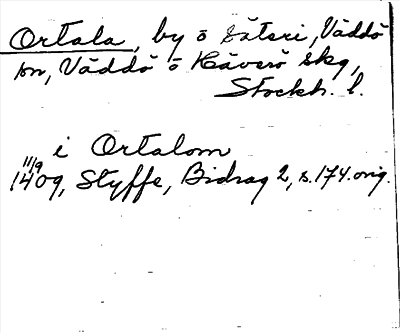 Ortala, by o Säteri, Väddö
sn, Väddö o Häverö skg,
Stockh. l.
i Ortalom
11/9
1409, Styffe, Bidrag 2, s. 174. orig.